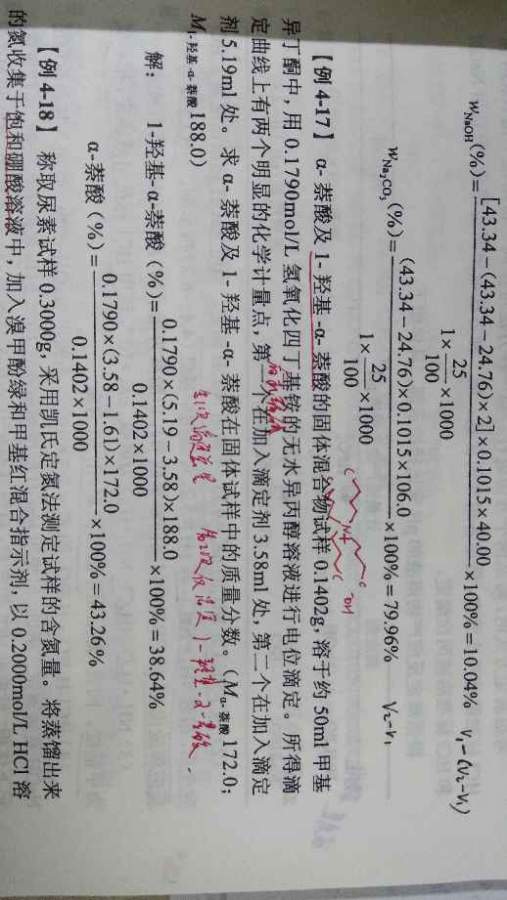 w_NaOH(%)=[43.34-(43.34-24.76)×2]×0.1015×40.00/(1×25/100×1000)×100%=10.04% V₁-(V₂-V₁)
w_Na₂CO₃(%)=(43.34-24.76)×0.1015×106.0/(1×25/100×1000)×100%=79.96% V₂-V₁
【例 4-17】 α-萘酸及 1-羟基-α-萘酸的固体混合物试样 0.1402g,溶于约 50ml 甲基
异丁酮中,用 0.1790mol/L 氢氧化四丁基铵的无水异丙醇溶液进行电位滴定。所得滴
定曲线上有两个明显的化学计量点,第一个在加入滴定剂 3.58ml 处,第二个在加入滴定
剂 5.19ml 处。求 α-萘酸及 1-羟基-α-萘酸在固体试样中的质量分数。(M_α-萘酸 172.0;
M_1-羟基-α-萘酸 188.0)
解: 1-羟基-α-萘酸(%)=0.1790×(5.19-3.58)×188.0/(0.1402×1000)×100%=38.64%
α-萘酸(%)=0.1790×(3.58-1.61)×172.0/(0.1402×1000)×100%=43.26%
【例 4-18】 称取尿素试样 0.3000g,采用凯氏定氮法测定试样的含氮量。将蒸馏出来
的氮收集于饱和硼酸溶液中,加入溴甲酚绿和甲基红混合指示剂,以 0.2000mol/L HCl 溶